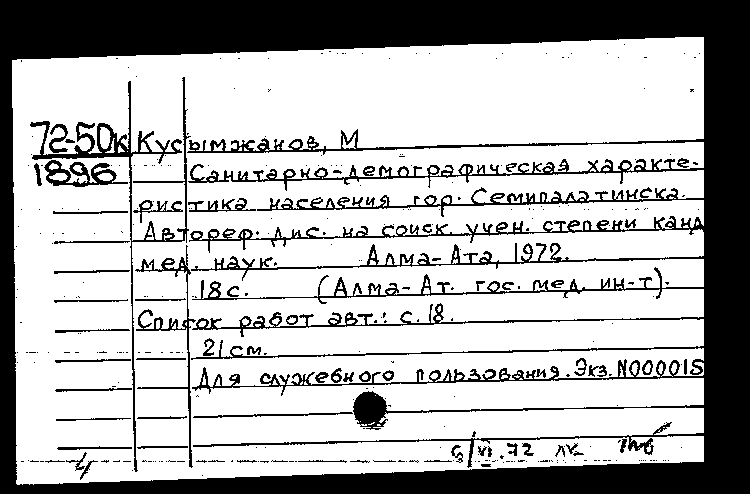 72-50к Кусымжанов, М
1896 Санитарно-демографическая характе-
ристика населения гор. Семипалатинска.
Автореф. дис. на соиск. учен. степени канд
мед. наук. Алма-Ата, 1972.
18с. (Алма-Ат. гос. мед. ин-т).
Список работ авт.: с.18.
21см.
Для служебного пользования. Экз. N000015
4
6/VI.72